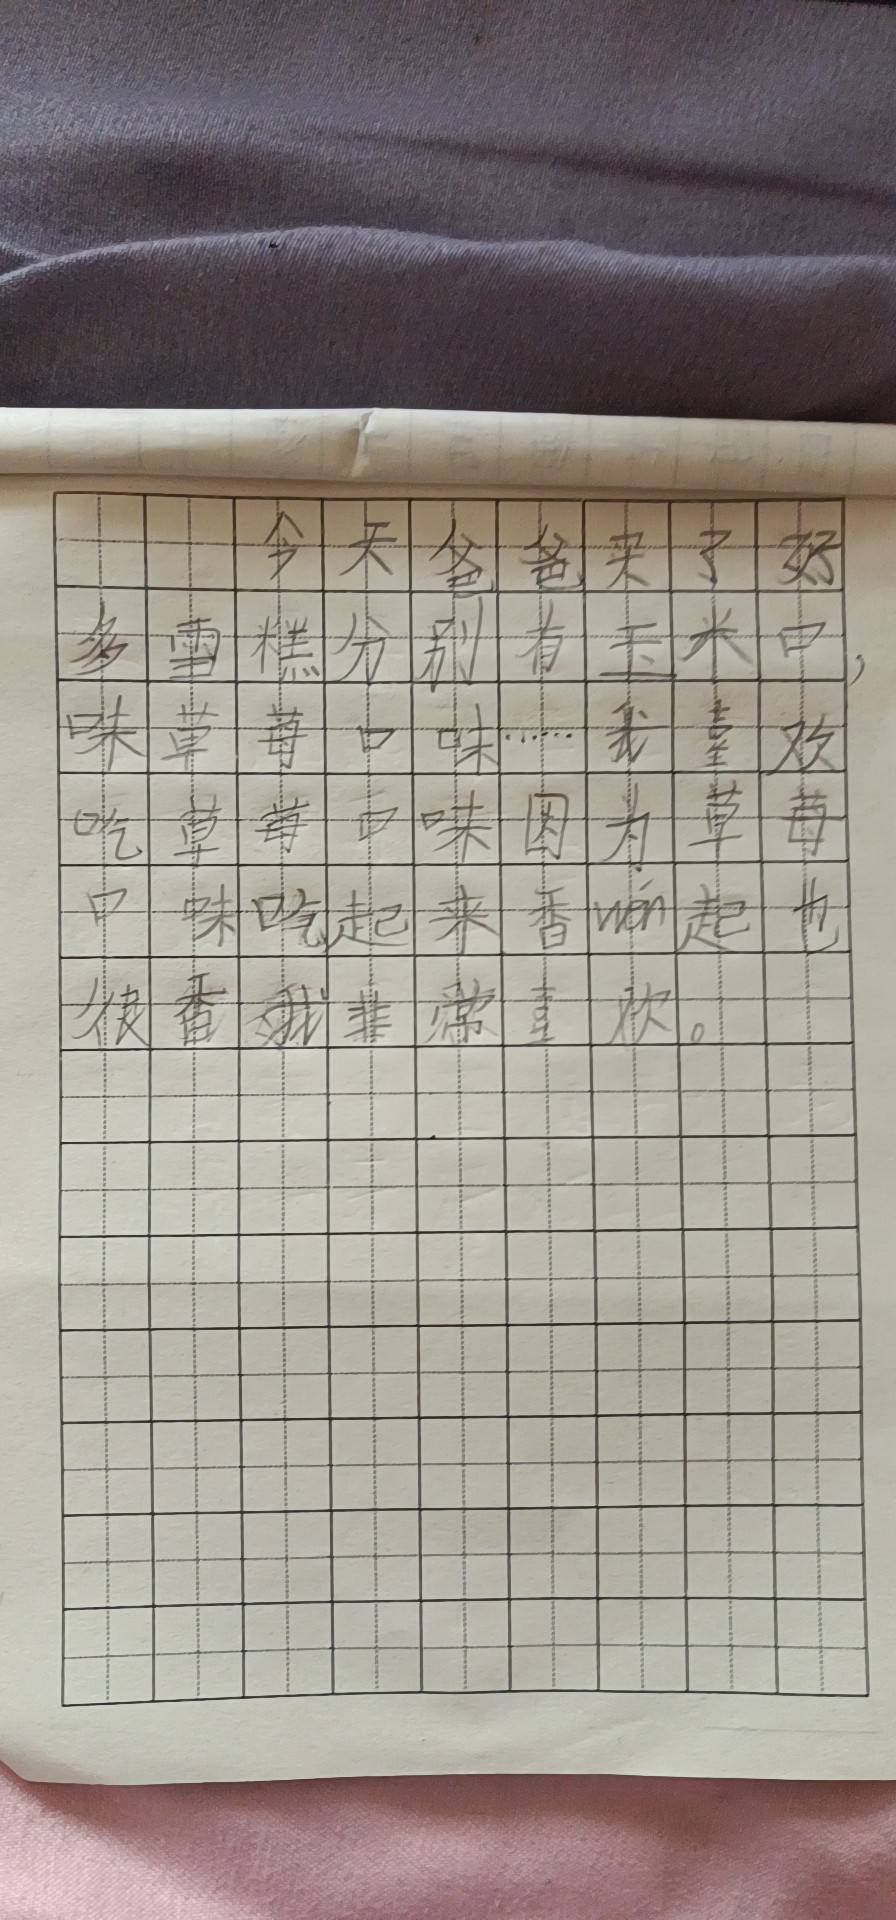 今天爸爸买了好
多雪糕分别有玉米口,
味草莓口味……我喜欢
吃草莓口味因为草莓
口味吃起来香wén起也
很香我非常喜欢。